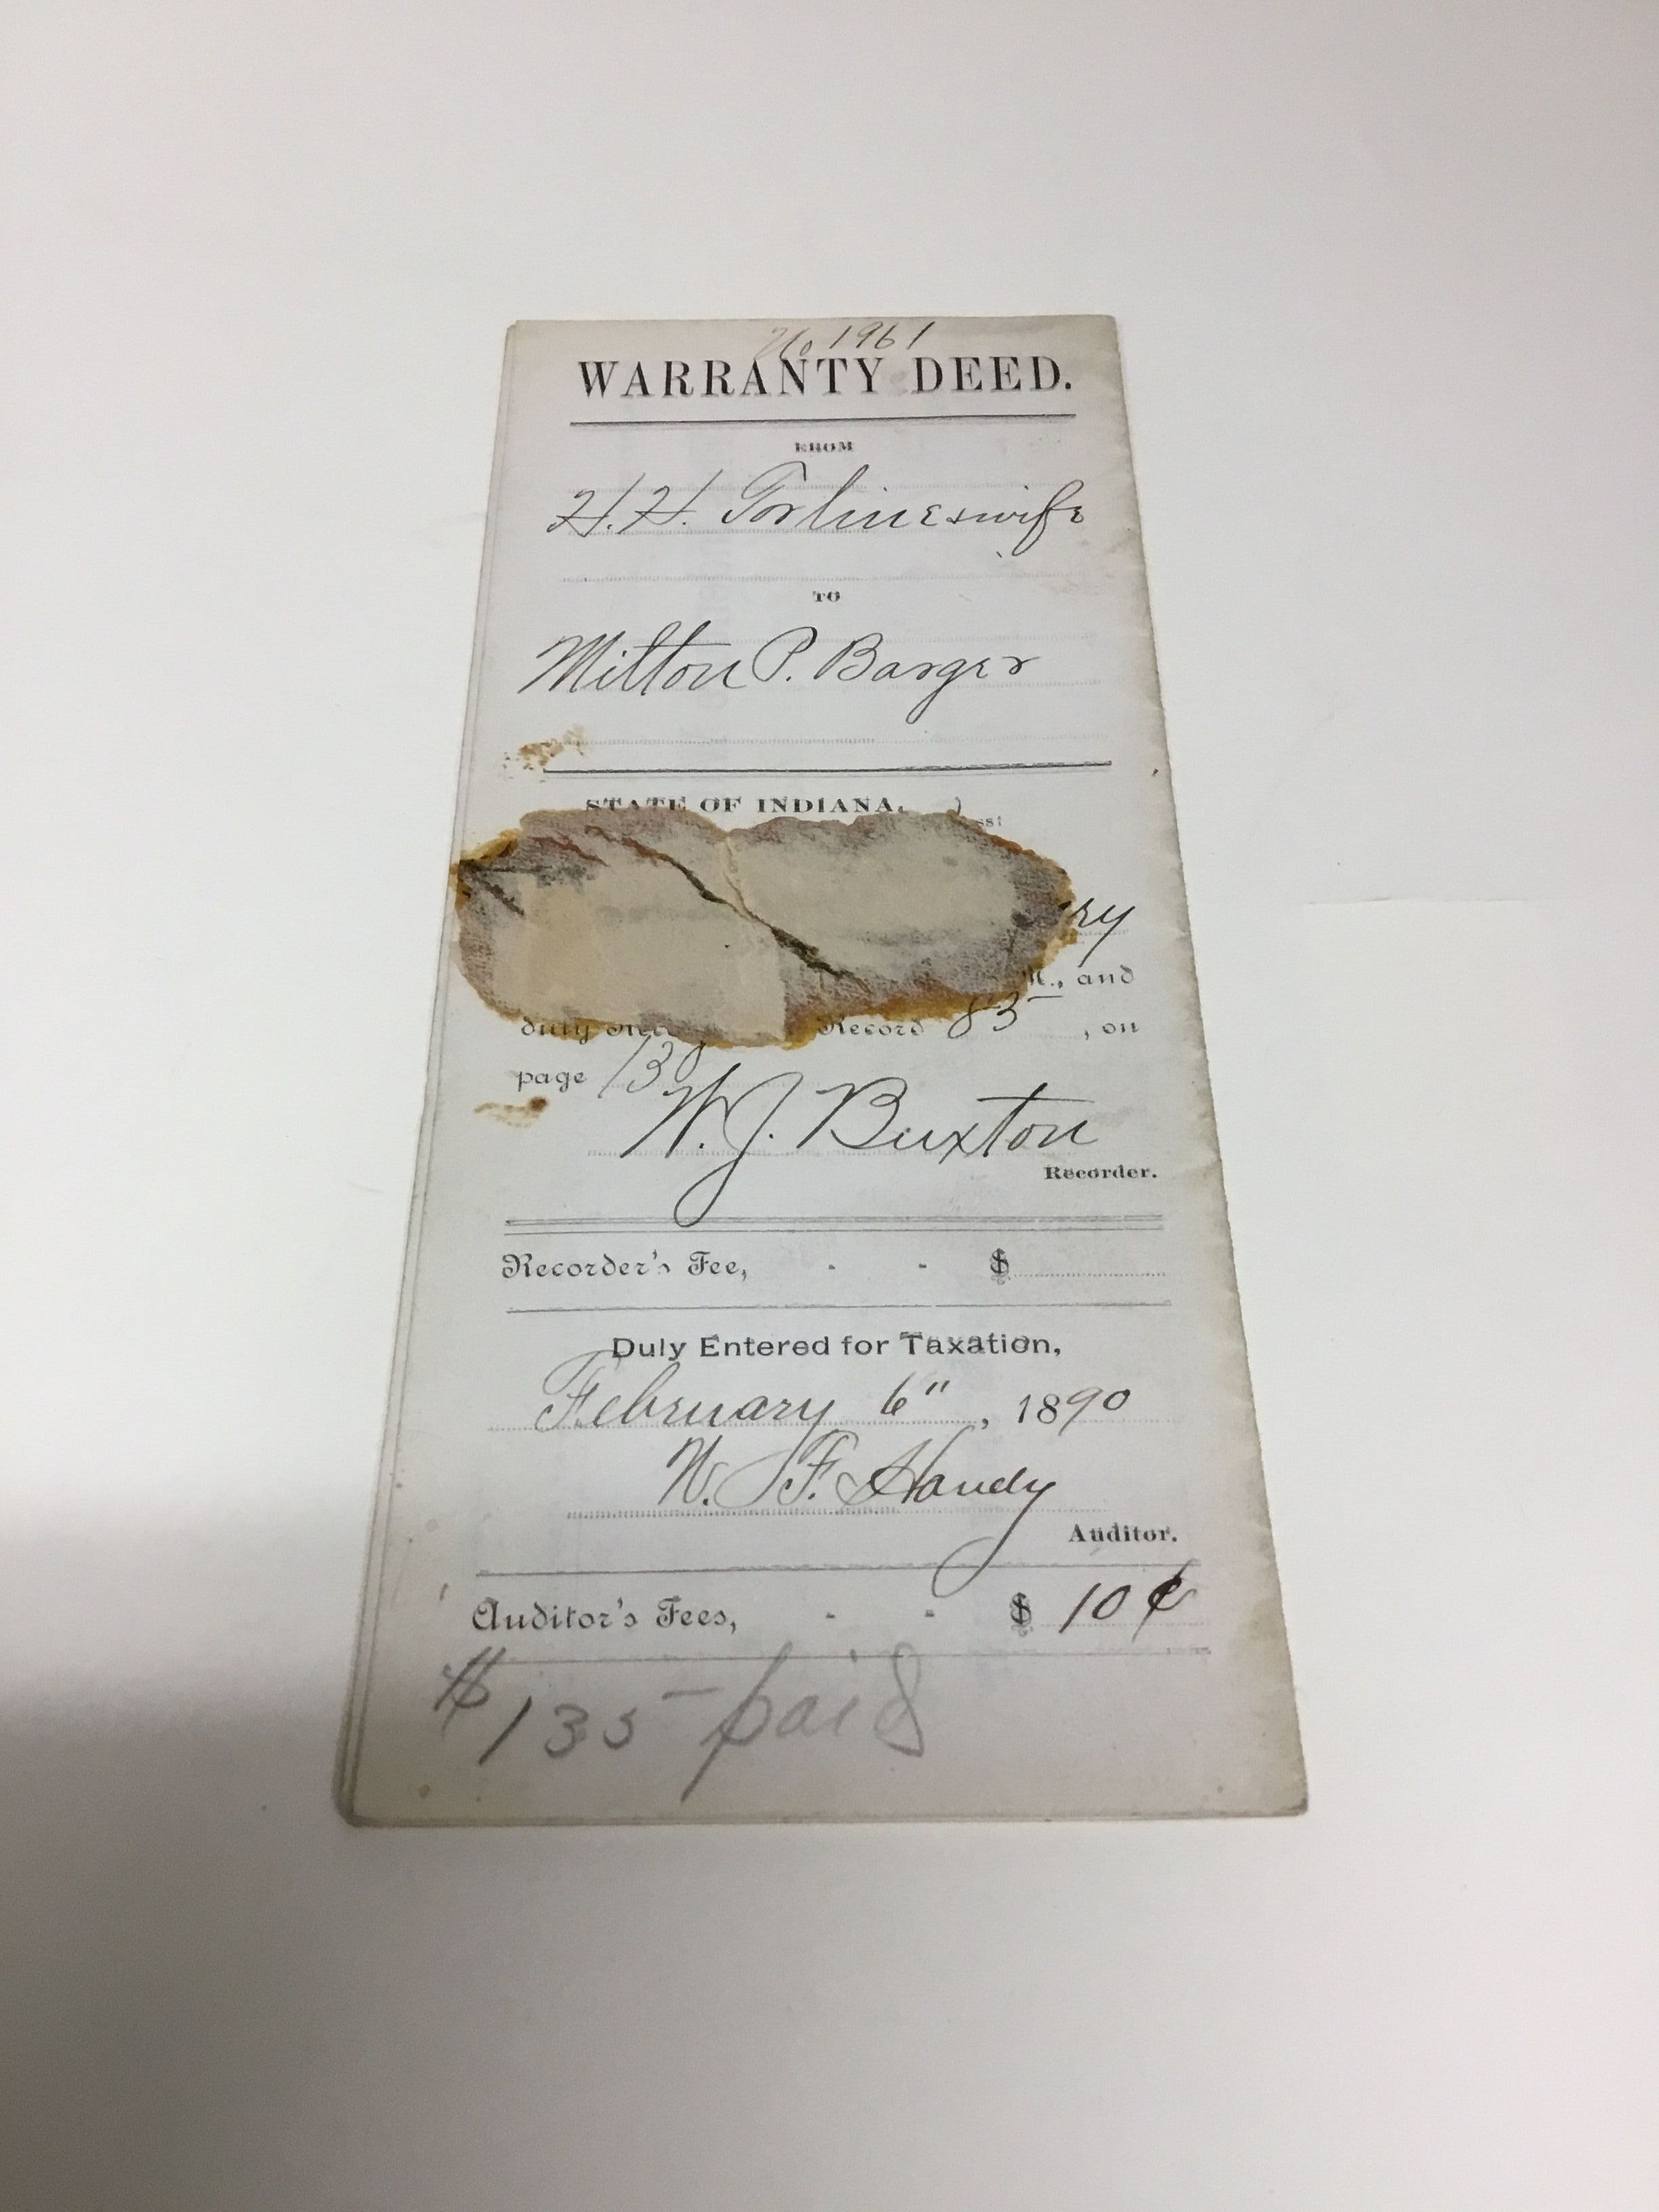 No 1961
WARRANTY DEED.
FROM
H.H. Torline & wife
TO
Milton P. Barger
STATE OF INDIANA, } ss:
ry
M., and
duly Record 83 , on
page 130
W.J. Buxton
Recorder.
Recorder's Fee, - - $
Duly Entered for Taxation,
February 6" , 1890
W. F. Handy
Auditor.
Auditor's Fees, - - $ 10¢
$135- paid